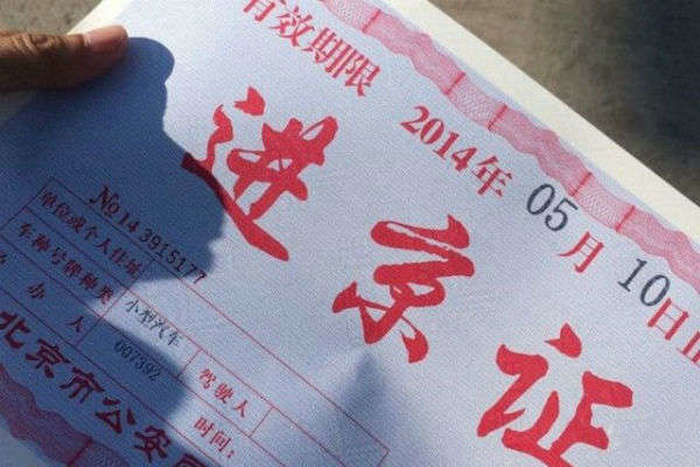 有效期限 2014年05月10日止
进京证
No 14 3915177
单位或个人住址
车种号牌种类 小型汽车 驾驶人
办人 007392 时间:
北京市公安